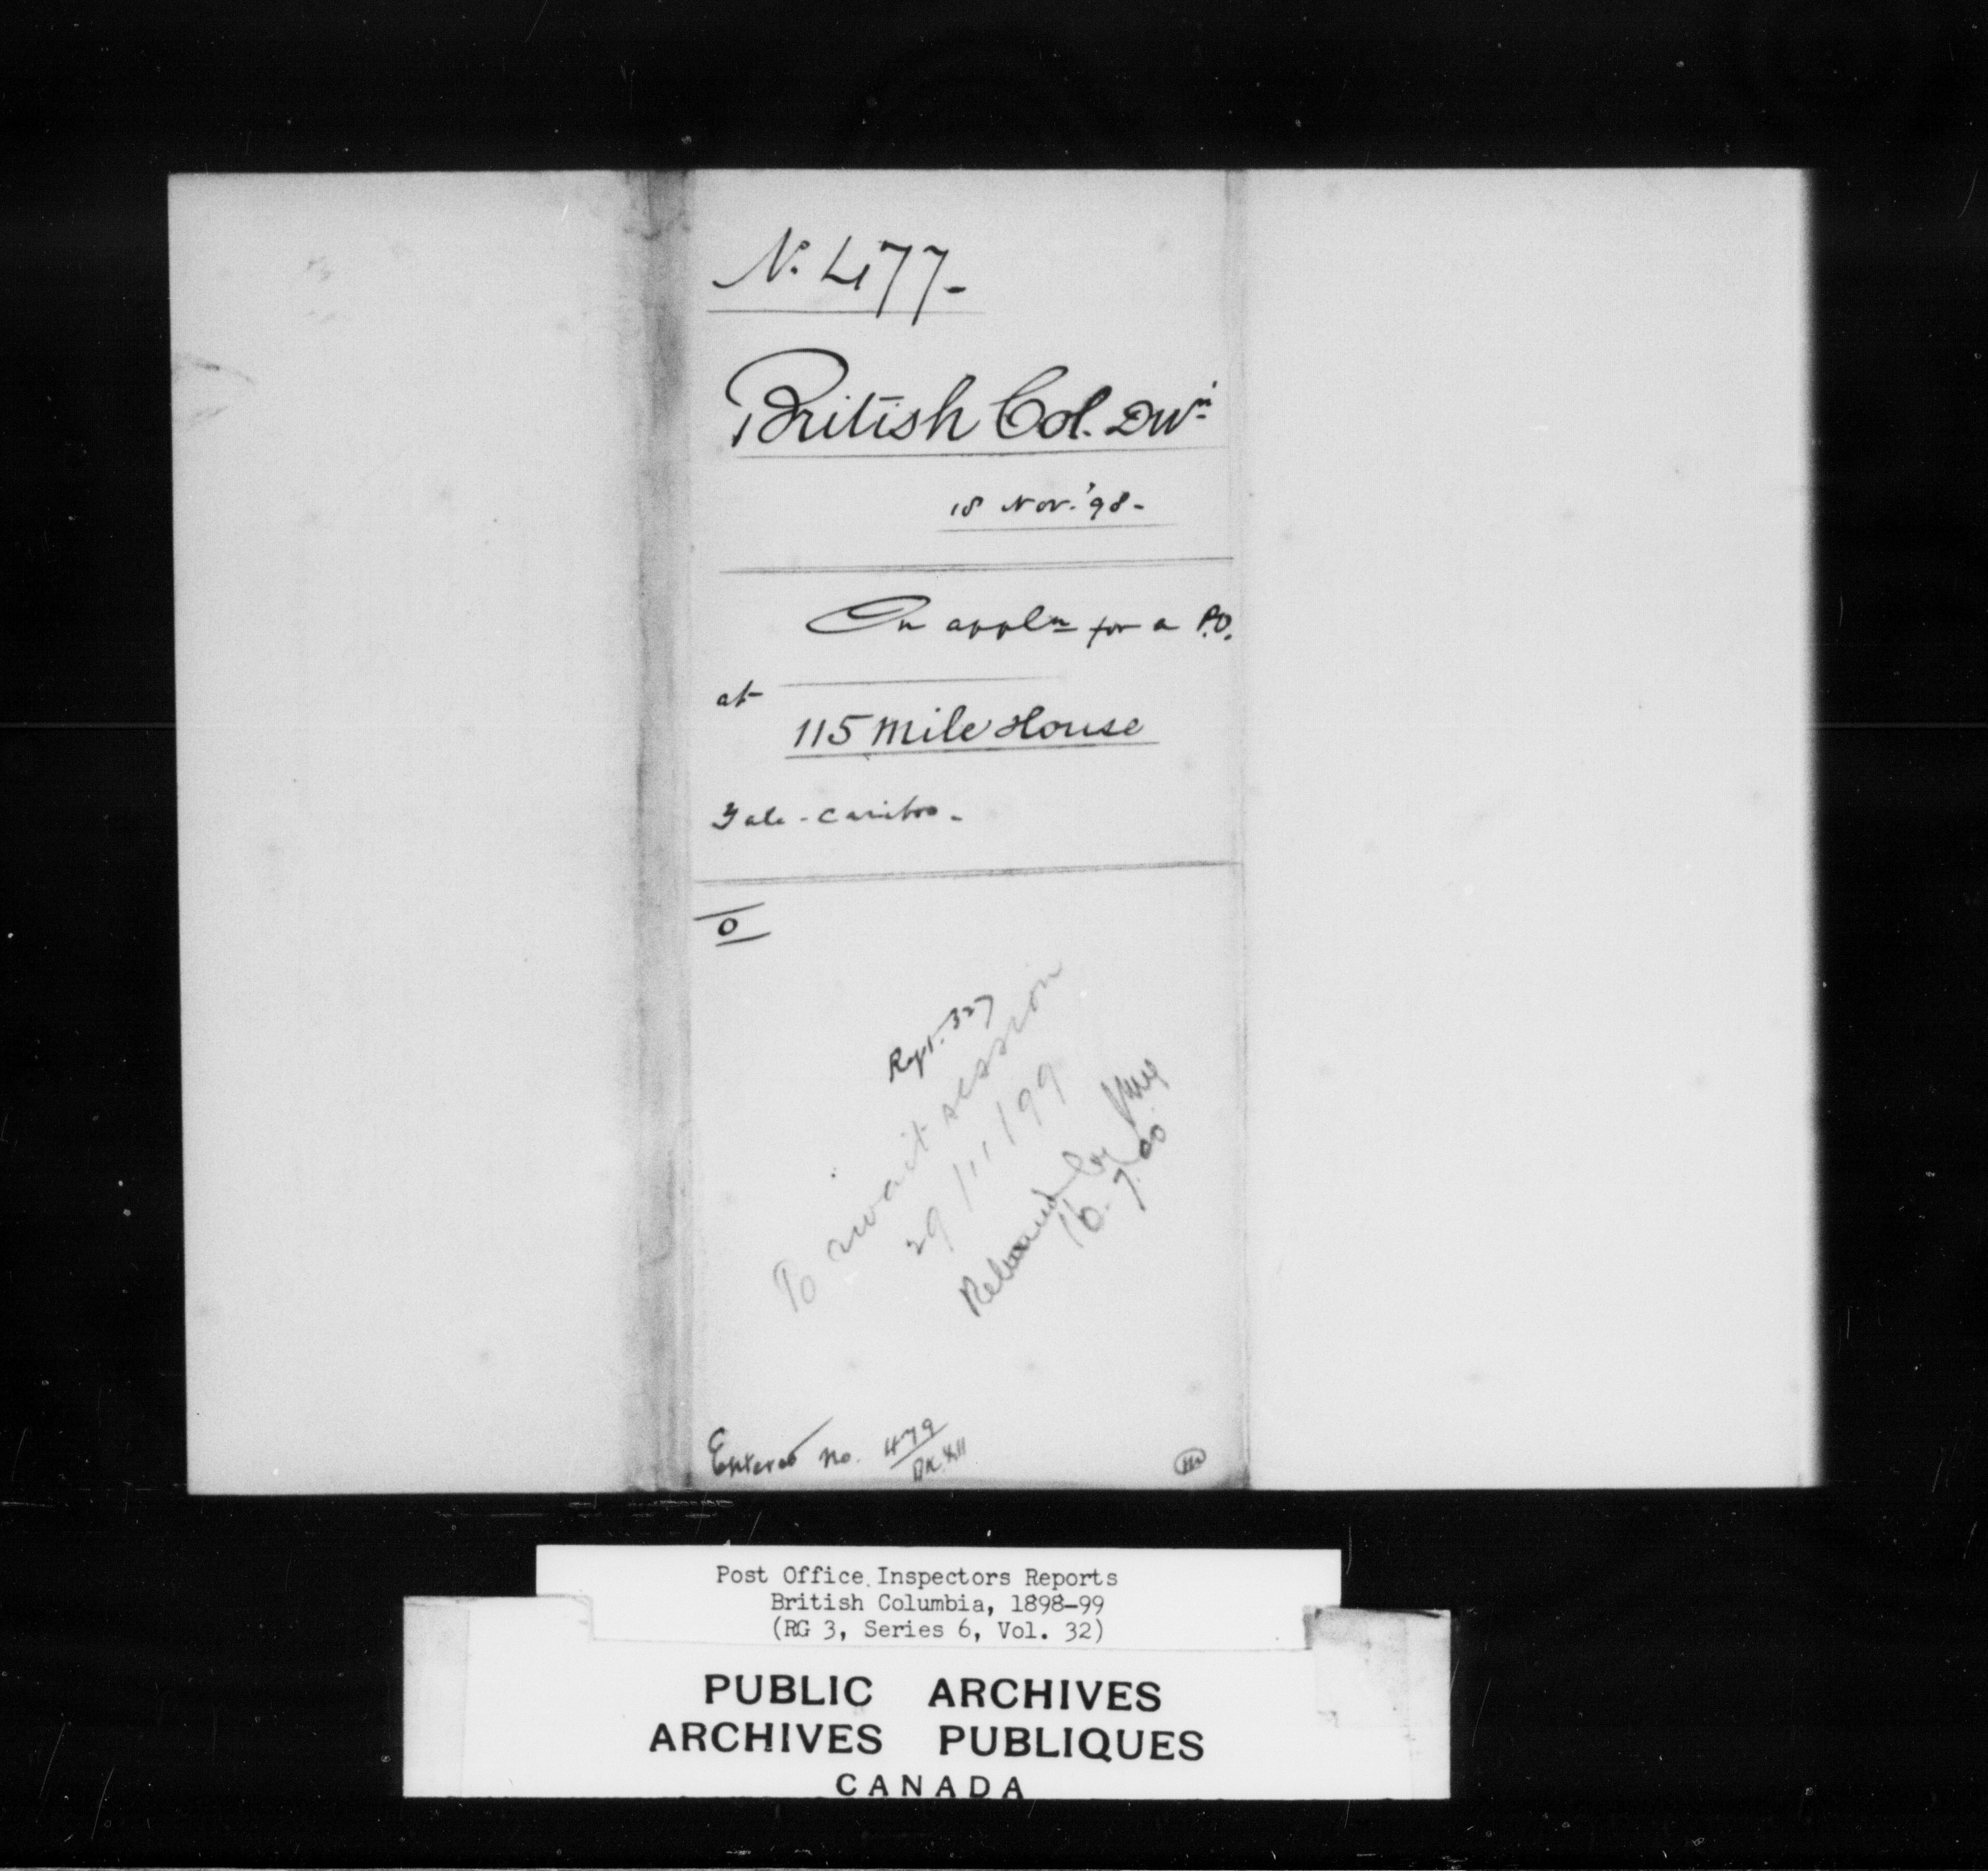 No. 477-
British Col. Dwn
18 Nov. '98-
On appln for a P.O.
at
115 Mile House
Yale-Cariboo-
0
Rept. 327
To await session
29/11/99
16.7.00
Entered No. 479
BK.
Post Office Inspectors Reports
British Columbia, 1898-99
(RG 3, Series 6, Vol. 32)
PUBLIC ARCHIVES
ARCHIVES PUBLIQUES
CANADA